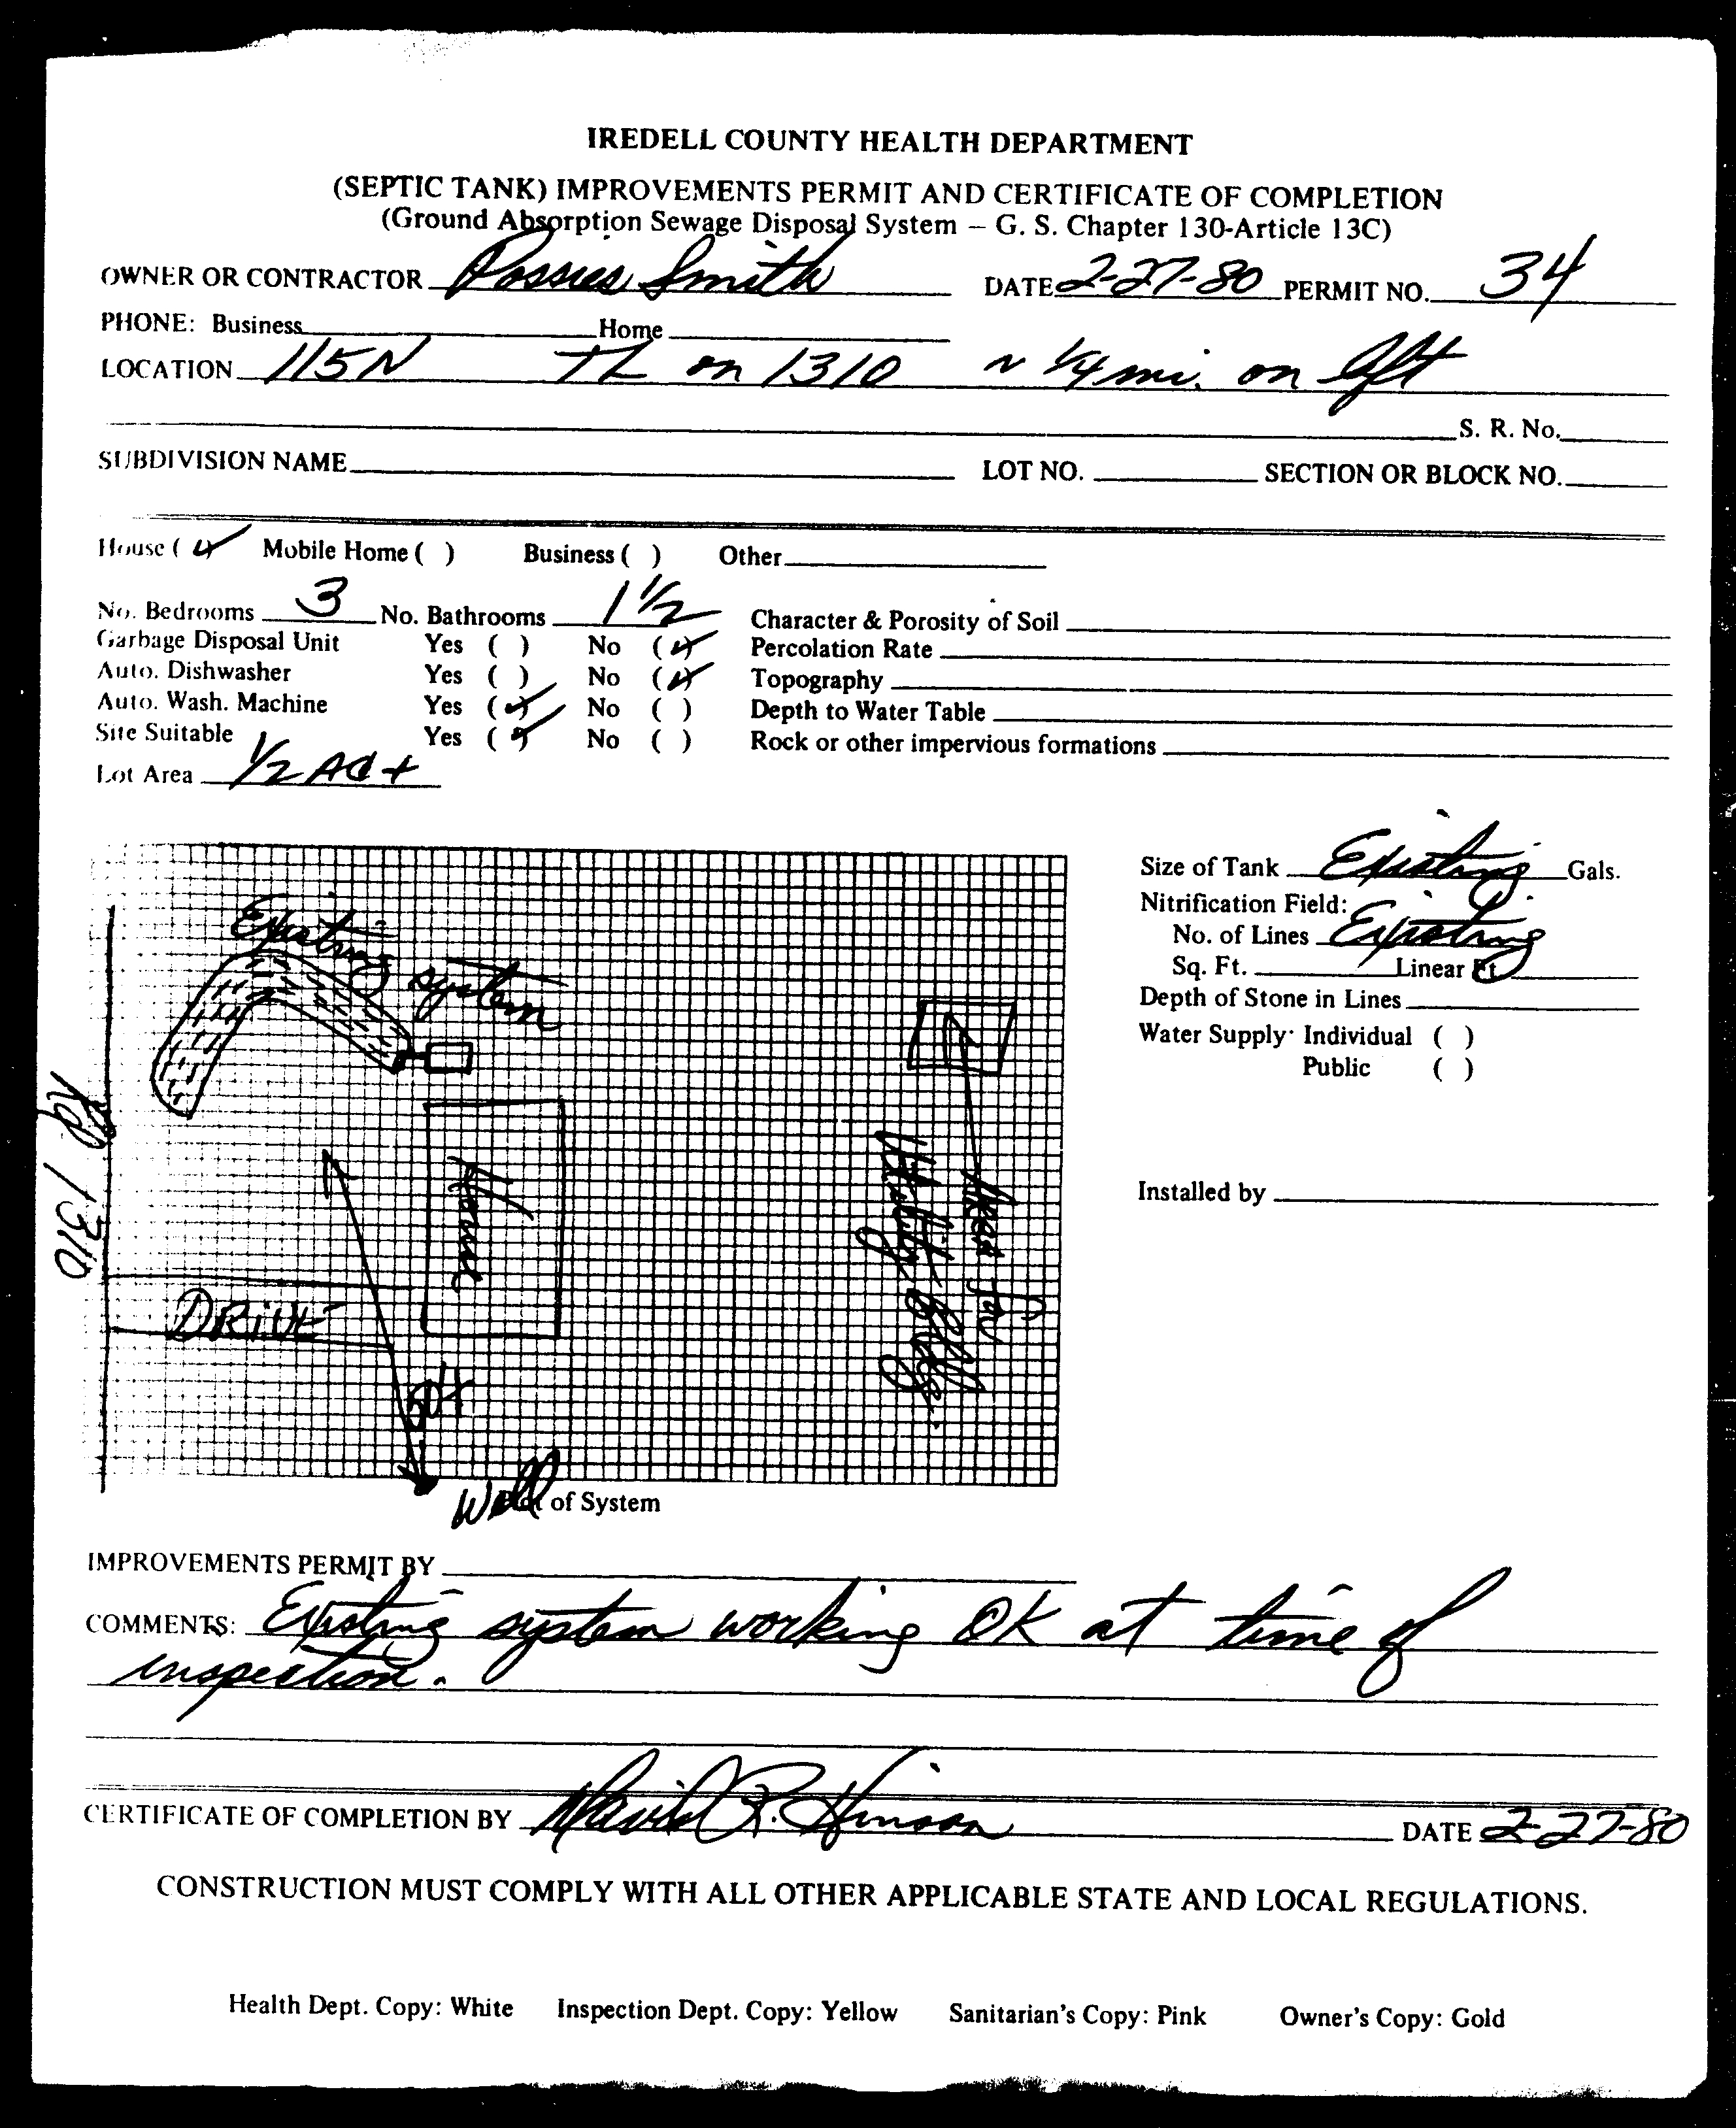 IREDELL COUNTY HEALTH DEPARTMENT
(SEPTIC TANK) IMPROVEMENTS PERMIT AND CERTIFICATE OF COMPLETION
(Ground Absorption Sewage Disposal System – G. S. Chapter 130-Article 13C)
OWNER OR CONTRACTOR Smith DATE 2-27-80 PERMIT NO. 34
PHONE: Business Home
LOCATION 115N TL on 1310 ~ 1/4 mi. on left
S. R. No.
SUBDIVISION NAME LOT NO. SECTION OR BLOCK NO.
House ( ✓ Mobile Home ( ) Business ( ) Other
No. Bedrooms 3 No. Bathrooms 1 1/2 Character & Porosity of Soil
Garbage Disposal Unit Yes ( ) No (✓) Percolation Rate
Auto. Dishwasher Yes ( ) No (✓) Topography
Auto. Wash. Machine Yes (✓) No ( ) Depth to Water Table
Site Suitable Yes (✓) No ( ) Rock or other impervious formations
Lot Area 1/2 AC +
Size of Tank Existing Gals.
Nitrification Field:
No. of Lines Existing
Sq. Ft. Linear Ft.
Depth of Stone in Lines
Water Supply: Individual ( )
Public ( )
Installed by
Existing system
Rd 1310
House
DRIVE
Area for
Utility Bldg.
Well
of System
IMPROVEMENTS PERMIT BY
COMMENTS: Existing system working OK at time of
inspection.
CERTIFICATE OF COMPLETION BY David R. Hinson DATE 2-27-80
CONSTRUCTION MUST COMPLY WITH ALL OTHER APPLICABLE STATE AND LOCAL REGULATIONS.
Health Dept. Copy: White Inspection Dept. Copy: Yellow Sanitarian's Copy: Pink Owner's Copy: Gold